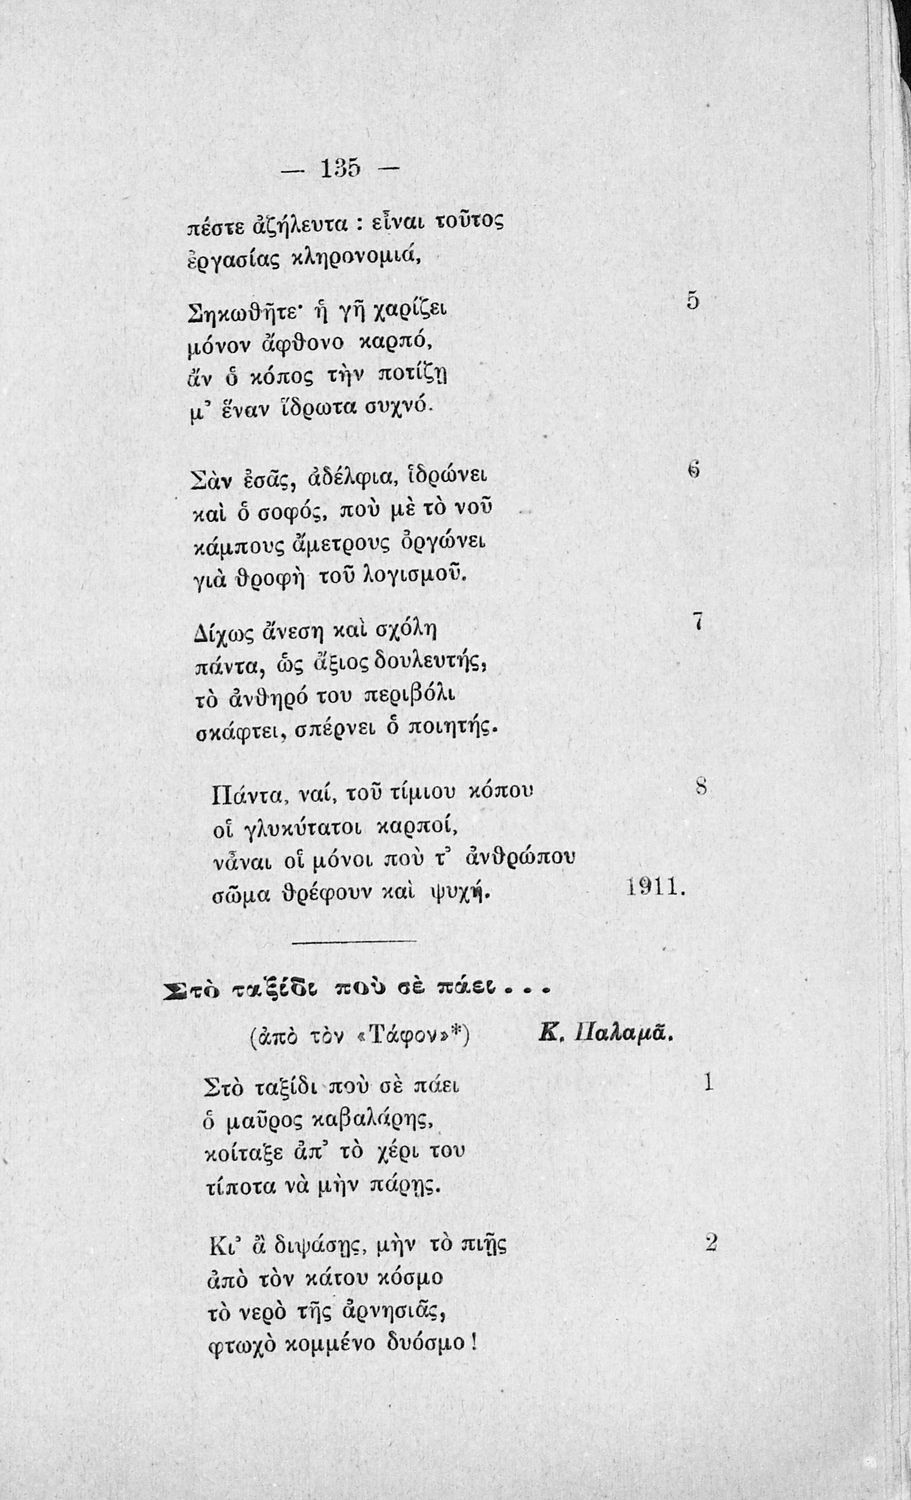 — 135 —
πέστε ἀζήλευτα : εἶναι τοῦτος
ἐργασίας κληρονομιά,
Σηκωθῆτε· ἡ γῆ χαρίζει 5
μόνον ἄφθονο καρπό,
ἄν ὁ κόπος τὴν ποτίζῃ
μ' ἕναν ἵδρωτα συχνό.
Σὰν ἐσᾶς, ἀδέλφια, ἱδρώνει 6
καὶ ὁ σοφός, ποὺ μὲ τὸ νοῦ
κάμπους ἄμετρους ὀργώνει
γιὰ θροφὴ τοῦ λογισμοῦ.
Δίχως ἄνεση καὶ σχόλη 7
πάντα, ὡς ἄξιος δουλευτής,
τὸ ἀνθηρό του περιβόλι
σκάφτει, σπέρνει ὁ ποιητής.
Πάντα, ναί, τοῦ τίμιου κόπου 8
οἱ γλυκύτατοι καρποί,
νἆναι οἱ μόνοι ποὺ τ' ἀνθρώπου
σῶμα θρέφουν καὶ ψυχή. 1911.
Στὸ ταξίδι ποὺ σὲ πάει . . .
(ἀπὸ τὸν «Τάφον»*) Κ. Παλαμᾶ.
Στὸ ταξίδι ποὺ σὲ πάει 1
ὁ μαῦρος καβαλάρης,
κοίταξε ἀπ' τὸ χέρι του
τίποτα νὰ μὴν πάρῃς.
Κι' ἂ διψάσῃς, μὴν τὸ πιῇς 2
ἀπὸ τὸν κάτου κόσμο
τὸ νερὸ τῆς ἀρνησιᾶς,
φτωχὸ κομμένο δυόσμο !